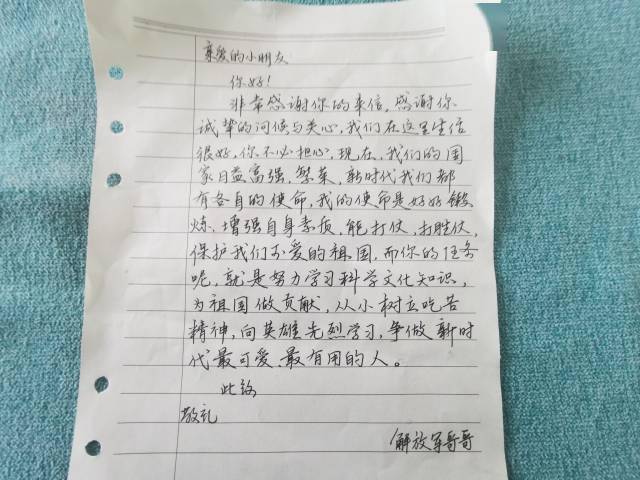 亲爱的小朋友
你好!
非常感谢你的来信。感谢你
诚挚的问候与关心,我们在这里生活
很好,你不必担心,现在,我们的国
家日益富强、繁荣,新时代我们都
有各自的使命,我的使命是好好锻
炼、增强自身素质,能打仗,打胜仗,
保护我们可爱的祖国,而你的任务
呢,就是努力学习科学文化知识,
为祖国做贡献,从小树立吃苦
精神,向英雄先烈学习,争做新时
代最可爱、最有用的人。
此致
敬礼
解放军哥哥